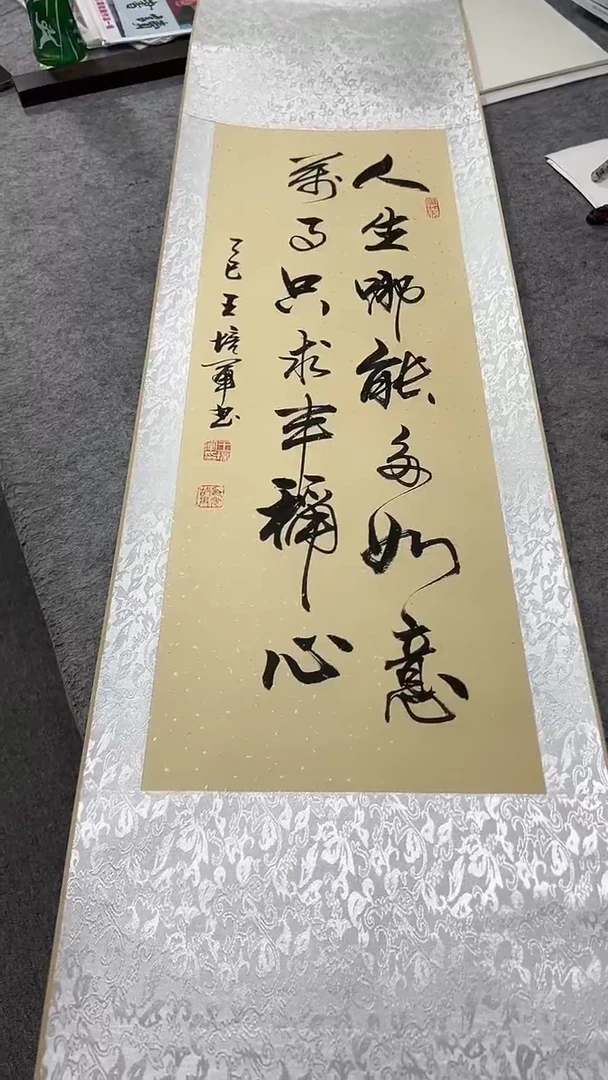 人生哪能多如意
萬事只求半稱心
乙巳 王培軍書